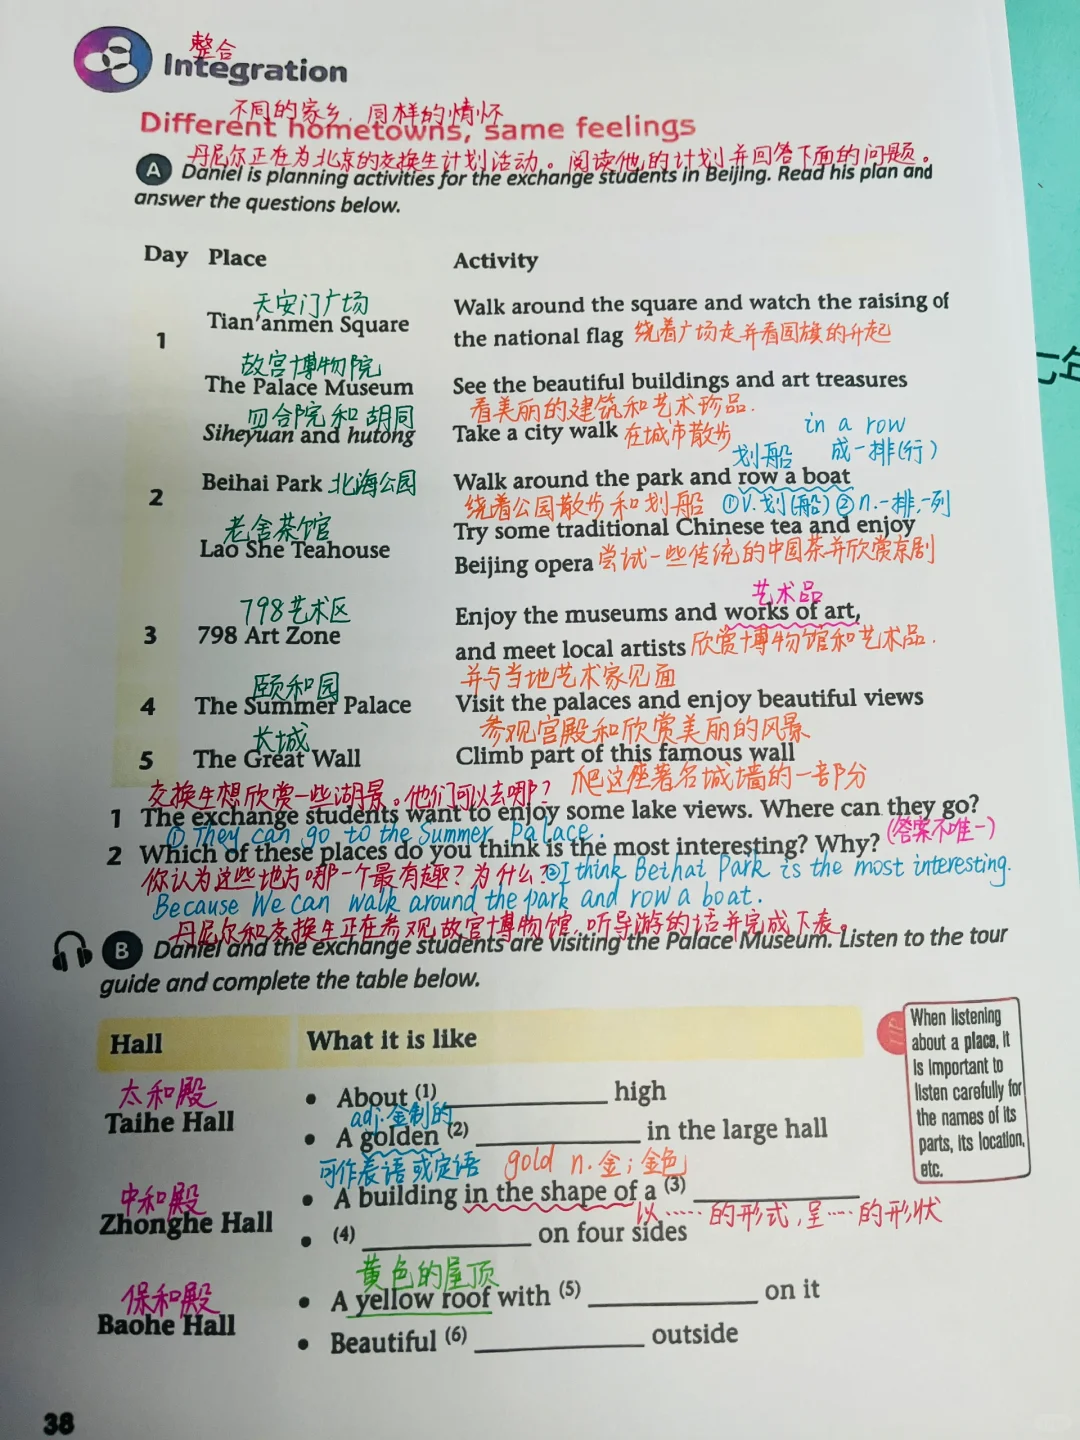 整合
Integration
不同的家乡，同样的情怀
Different hometowns, same feelings
丹尼尔正在为北京的交换生计划活动。阅读他的计划并回答下面的问题。
A Daniel is planning activities for the exchange students in Beijing. Read his plan and
answer the questions below.
Day Place Activity
天安门广场
Tian'anmen Square
Walk around the square and watch the raising of
1
the national flag 绕着广场走并看国旗的升起
故宫博物院
The Palace Museum
See the beautiful buildings and art treasures
看美丽的建筑和艺术珍品.
四合院和胡同
Siheyuan and hutong
Take a city walk 在城市散步
in a row
成一排(行)
划船
2
Beihai Park 北海公园
Walk around the park and row a boat
绕着公园散步和划船 ①v.划(船)②n.一排,一列
老舍茶馆
Lao She Teahouse
Try some traditional Chinese tea and enjoy
Beijing opera 尝试一些传统的中国茶并欣赏京剧
798艺术区
艺术品
3 798 Art Zone
Enjoy the museums and works of art,
and meet local artists 欣赏博物馆和艺术品.
并与当地艺术家见面
颐和园
4 The Summer Palace
Visit the palaces and enjoy beautiful views
参观宫殿和欣赏美丽的风景
长城
5 The Great Wall
Climb part of this famous wall
爬这座著名城墙的一部分
交换生想欣赏一些湖景。他们可以去哪？
1 The exchange students want to enjoy some lake views. Where can they go?
① They can go to the Summer Palace.
2 Which of these places do you think is the most interesting? Why? (答案不唯一)
你认为这些地方哪一个最有趣？为什么？②I think Beihai Park is the most interesting.
Because We can walk around the park and row a boat.
丹尼尔和交换生正在参观故宫博物馆，听导游的话并完成下表。
B Daniel and the exchange students are visiting the Palace Museum. Listen to the tour
guide and complete the table below.
Hall What it is like
太和殿
Taihe Hall
• About (1) ________ high
adj.金制的
• A golden (2) ________ in the large hall
可作表语或定语 gold n.金；金色
中和殿
Zhonghe Hall
• A building in the shape of a (3) ________
以……的形式，呈……的形状
• (4) ________ on four sides
黄色的屋顶
保和殿
Baohe Hall
• A yellow roof with (5) ________ on it
• Beautiful (6) ________ outside
When listening
about a place, it
is important to
listen carefully for
the names of its
parts, its location,
etc.
38
七年